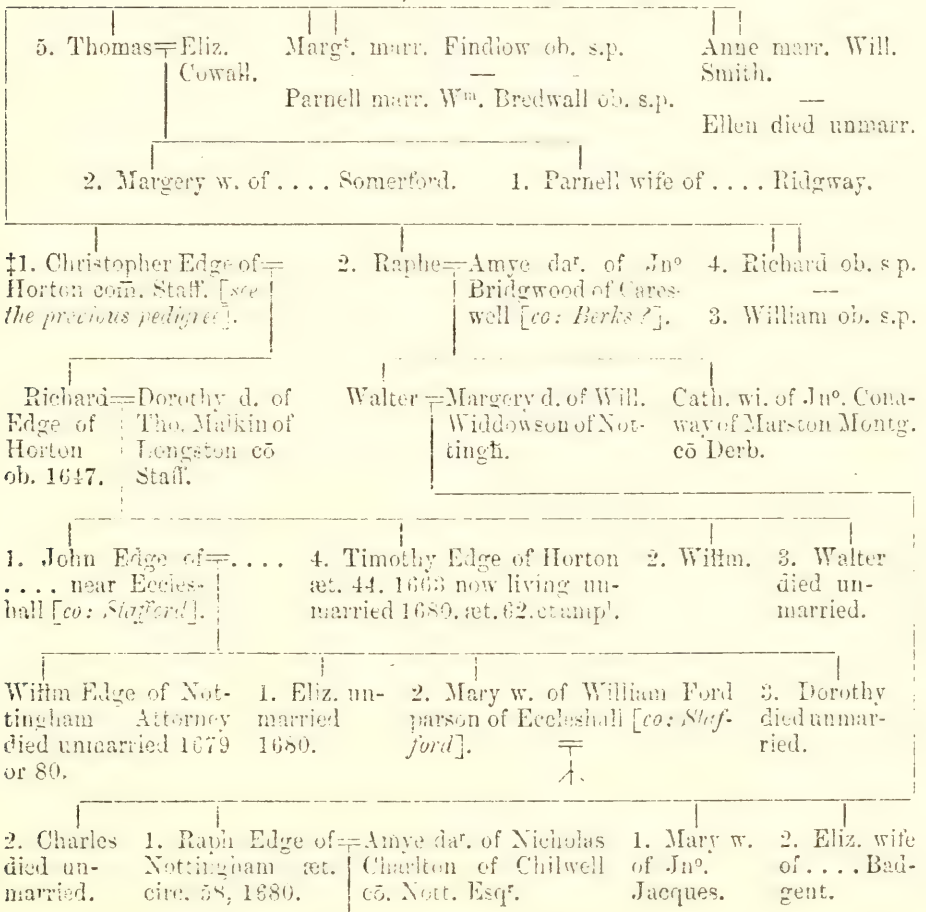 5. Thomas=Eliz. Cowall.
Margt. marr. Findlow ob. s.p.
—
Parnell marr. Wm. Bredwall ob. s.p.
Anne marr. Will. Smith.
—
Ellen died unmarr.
2. Margery w. of .... Somerford.
1. Parnell wife of .... Ridgway.
‡1. Christopher Edge of=
Horton com̄. Staff. [see
the precious pedigree].
2. Raphe=Amye dar. of Jno
Bridgwood of Cares-
well [co: Berks ?].
4. Richard ob. s p.
—
3. William ob. s.p.
Richard=Dorothy d. of
Edge of Tho. Malkin of
Horton Longston cō
ob. 1647. Staff.
Walter=Margery d. of Will.
Widdowson of Not-
tingħ.
Cath. wi. of Jno. Cona-
way of Marston Montg.
cō Derb.
1. John Edge of=....
.... near Eccles-
hall [co: Stafford].
4. Timothy Edge of Horton
æt. 44. 1663 now living un-
married 1680. æt. 62. et ampt.
2. Willm.
3. Walter
died un-
married.
Willm Edge of Not-
tingham Attorney
died unmarried 1679
or 80.
1. Eliz. un-
married
1680.
2. Mary w. of William Ford
parson of Eccleshall [co: Staf-
ford].
3. Dorothy
died unmar-
ried.
2. Charles
died un-
married.
1. Raph Edge of=Amye dar. of Nicholas
Nottingham æt. Charlton of Chilwell
circ. 58, 1680. cō. Nott. Esqr.
1. Mary w.
of Jno.
Jacques.
2. Eliz. wife
of .... Bad-
gent.